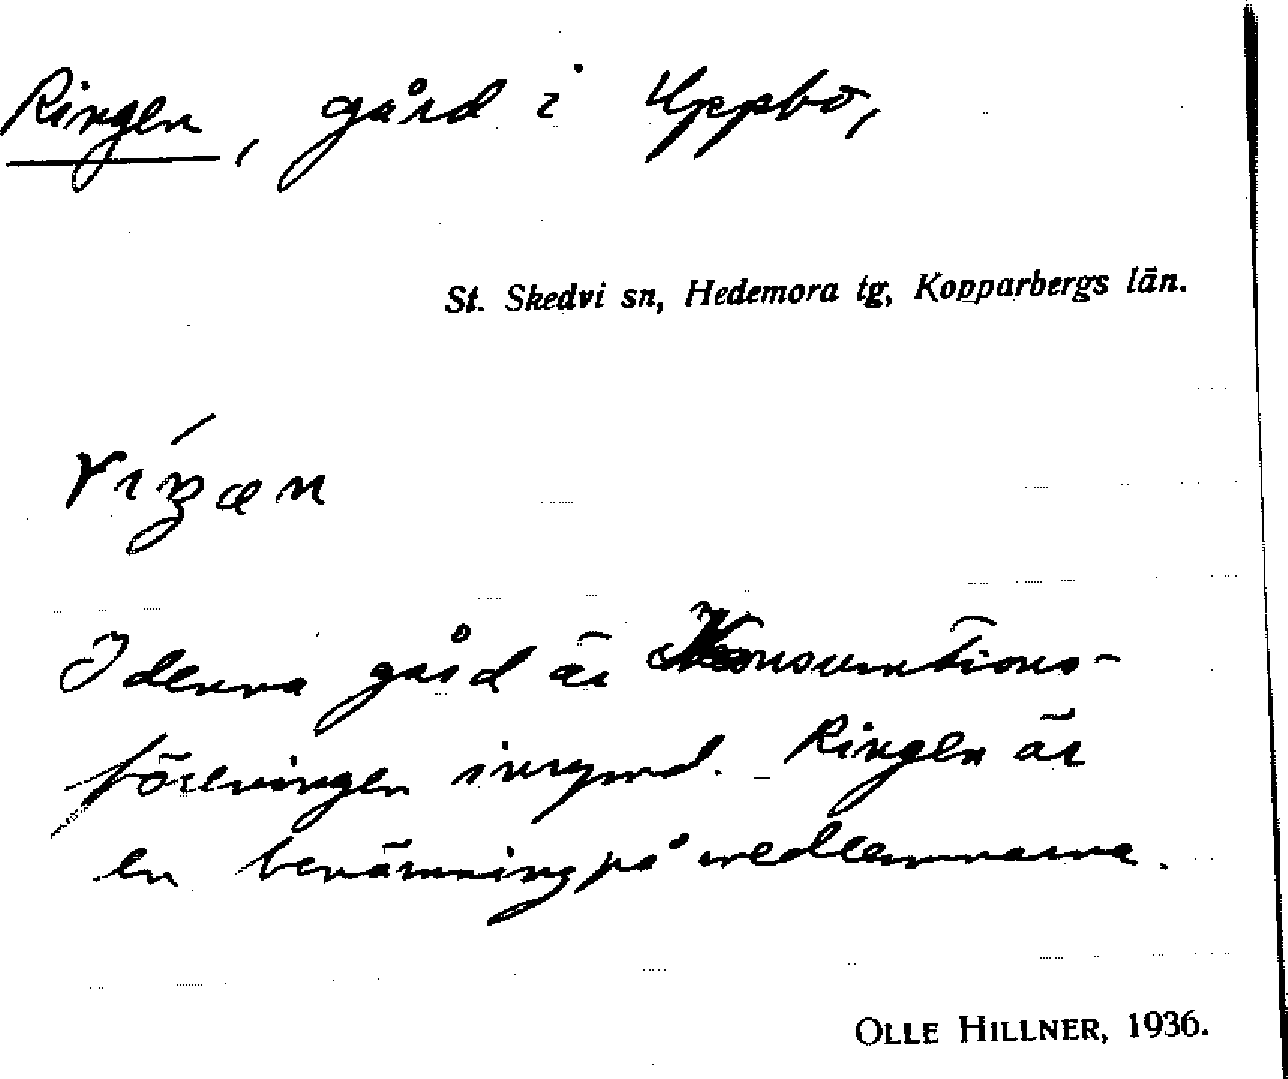 Ringen, gård i Uppbo,
St. Skedvi sn, Hedemora tg, Kopparbergs län.
I denna gård är Konsumtions-
föreningen inrymd. Ringen är
en benämning på medlemmarna.
OLLE HILLNER, 1936.